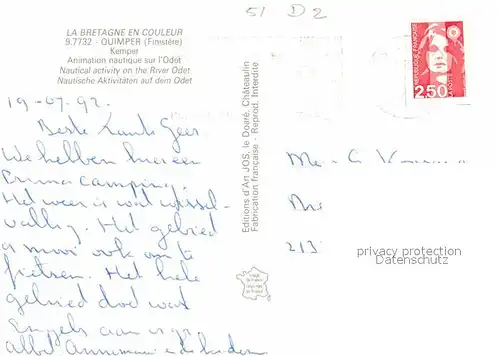 51 D2
LA BRETAGNE EN COULEUR
9.7732 - QUIMPER (Finistère)
Kemper
Animation nautique sur l'Odet
Nautical activity on the River Odet
Nautische Aktivitäten auf dem Odet
19-07-92.
Beste Tante Geer
We hebben hier een
prima camping.
Het weer is wat wissel-
vallig. Het gebied
is mooi ook om te
fietsen. Het hele
gebied doet wat
Engels aan. gr.
allol Annemarie de kinderen
Editions d'Art JOS, le Doaré, Châteaulin
Fabrication française - Reprod. Interdite
REPUBLIQUE FRANÇAISE
2,50
LA POSTE
213
privacy protection
Datenschutz